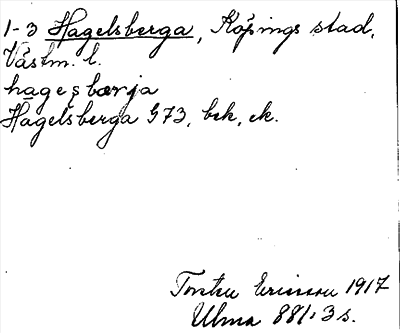 1-3 Hagelsberga, Köpings stad,
Västm. l.
hagesbærja
Hagelsberga 573, bek, ek.
Torsten Ericsson 1917
Ulma 88/1 3 s.